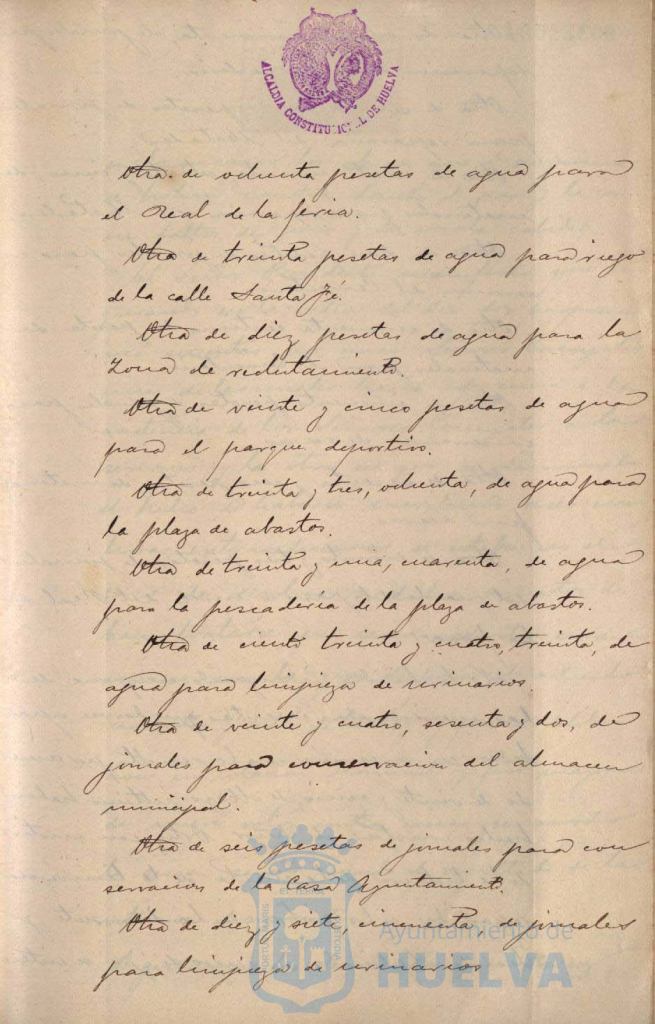 ALCALDIA CONSTITUCIONAL DE HUELVA
Otra de ochenta pesetas de agua para
el Real de la feria.
Otra de treinta pesetas de agua para riego
de la calle Santa Fé.
Otra de diez pesetas de agua para la
Zona de reclutamiento.
Otra de veinte y cinco pesetas de agua
para el parque deportivo.
Otra de treinta y tres, ochenta, de agua para
la plaza de abastos.
Otra de treinta y una, cuarenta, de agua
para la pescadería de la plaza de abastos.
Otra de ciento treinta y cuatro, treinta, de
agua para limpieza de urinarios.
Otra de veinte y cuatro, sesenta y dos, de
jornales para conservacion del almacen
municipal.
Otra de seis pesetas de jornales para con
servacion de la Casa Ayuntamiento.
Otra de diez y siete, cincuenta, de jornales
para limpieza de urinarios
Ayuntamiento de
HUELVA